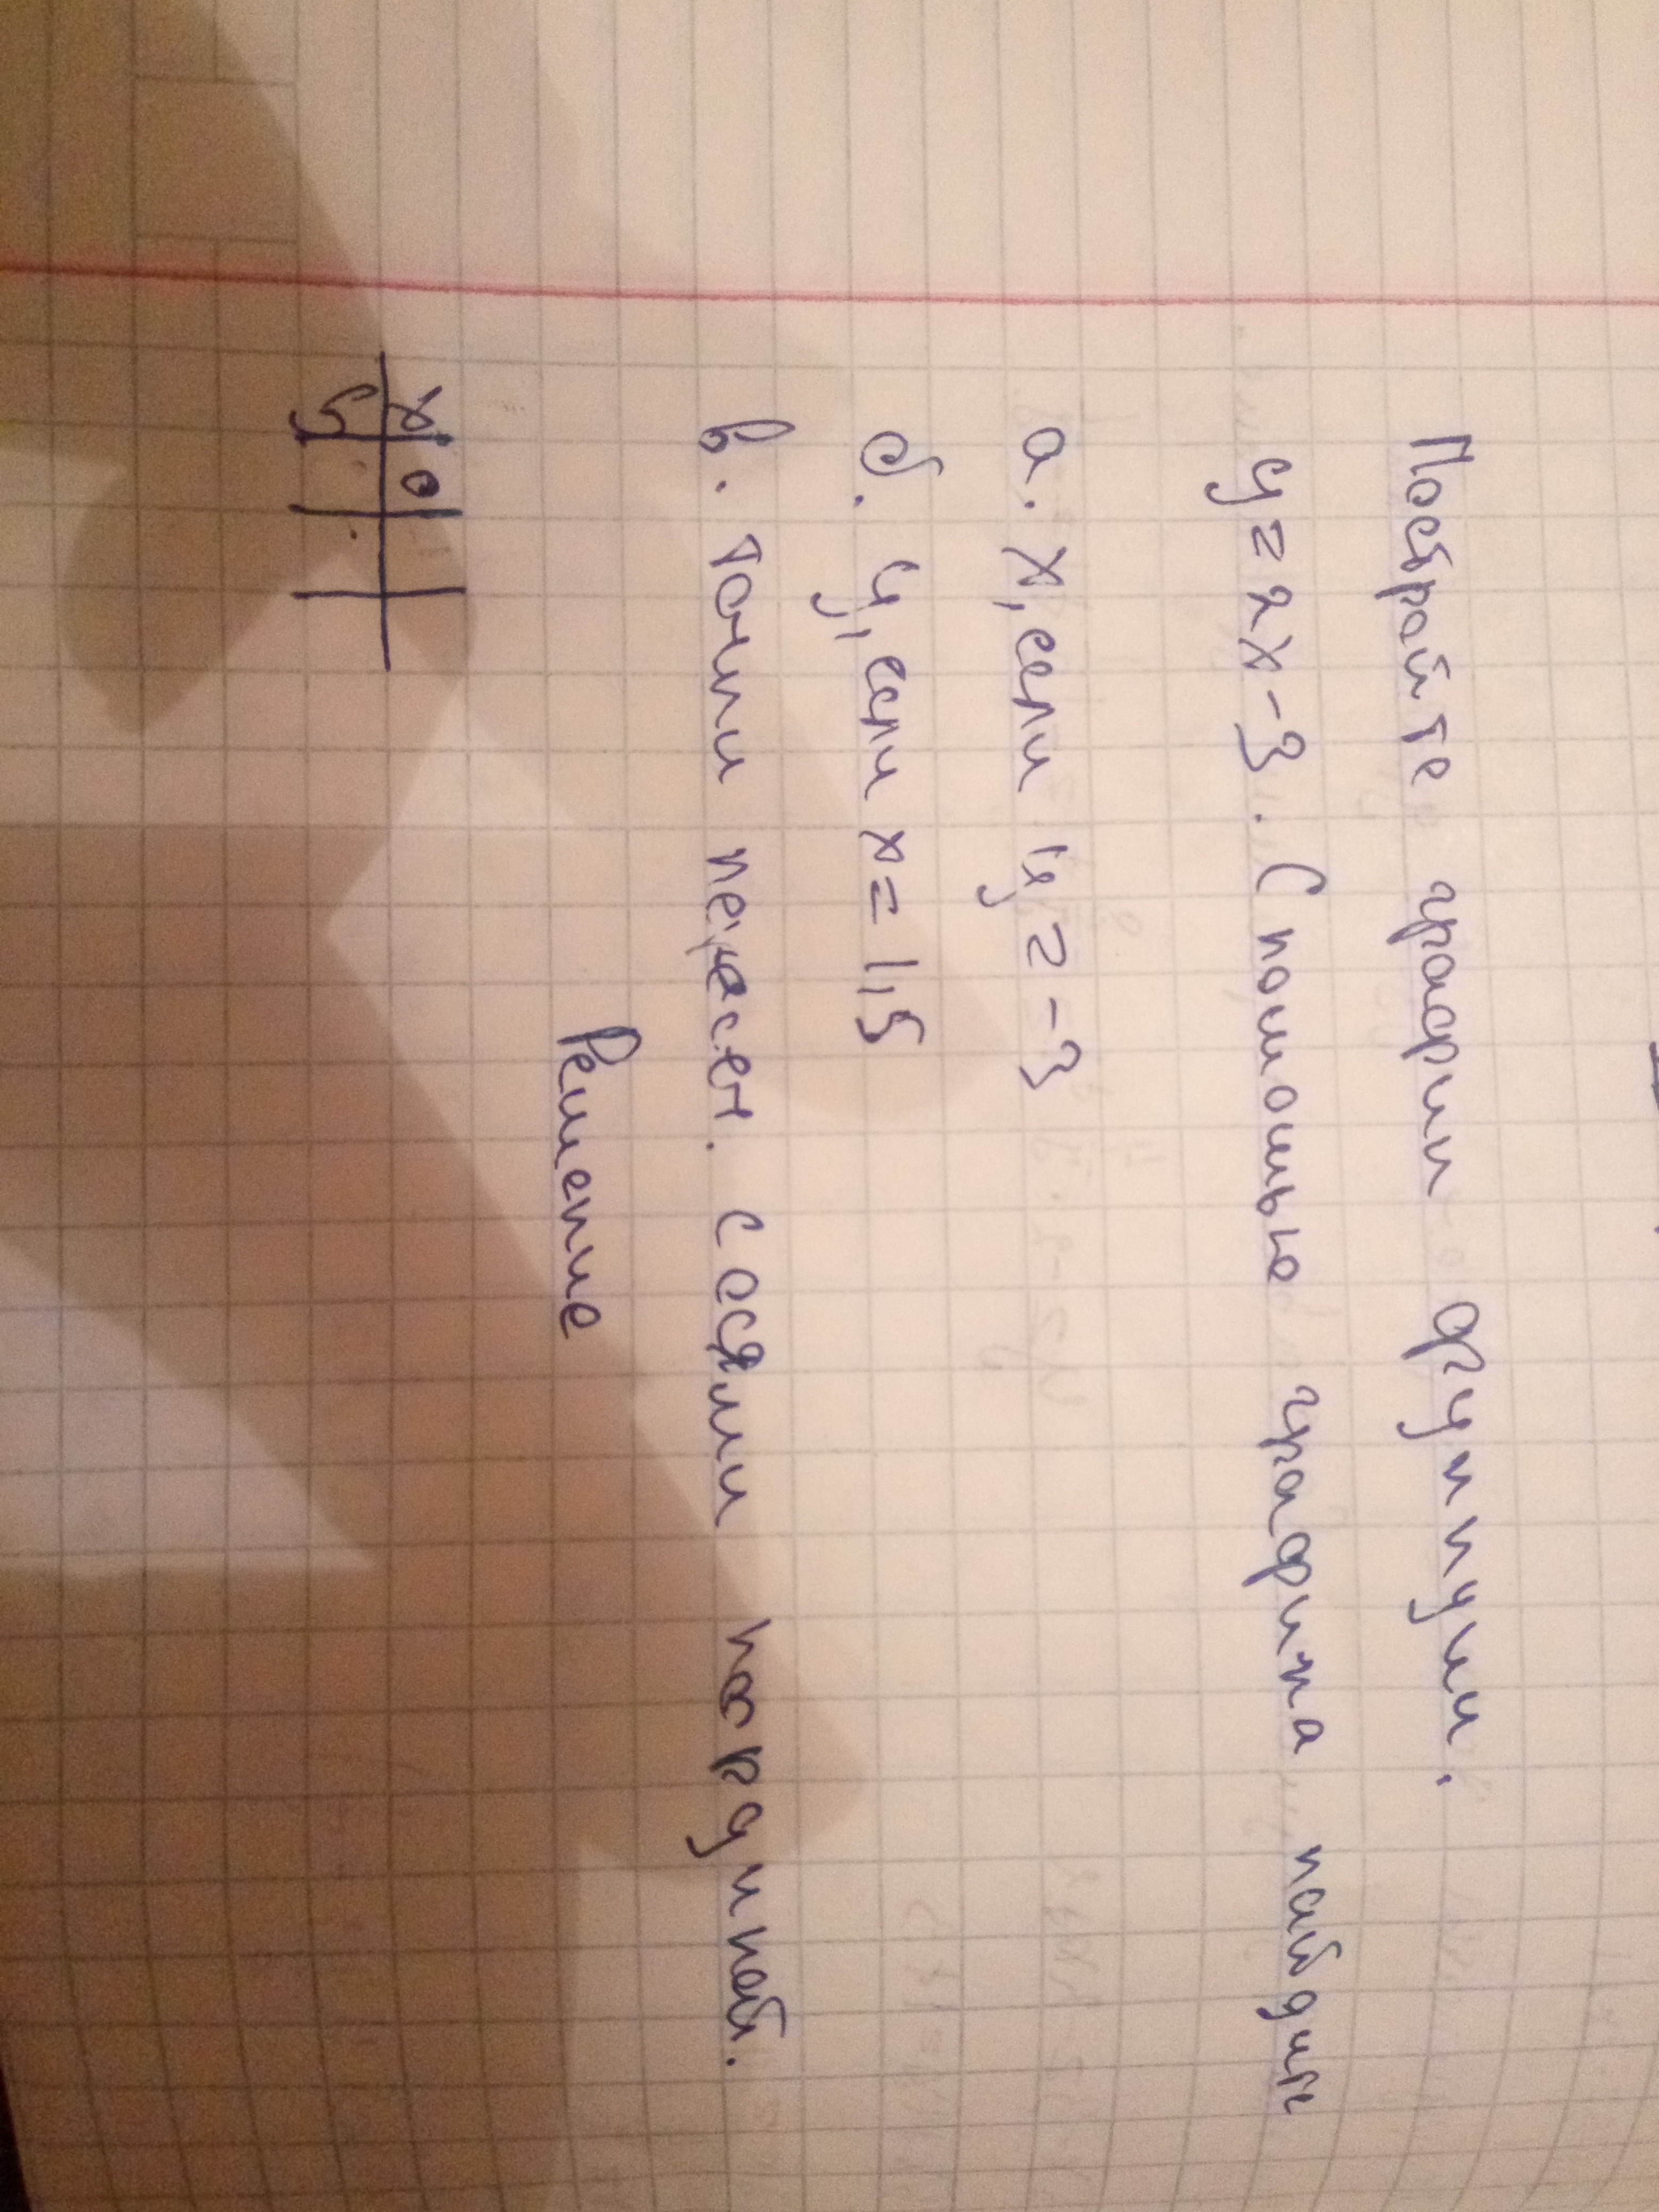 Постройте график функции.
y=2x-3. С помощью графика найдите
а. x, если y = -3
б. y, если x = 1,5
в. точки пересеч. с осями координат.
Решение
x 0
y